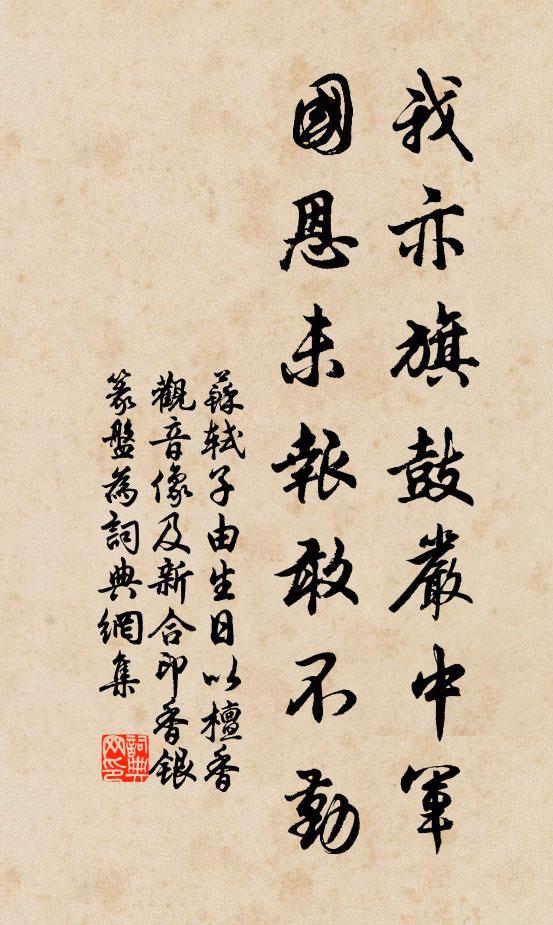 我亦旗鼓嚴中軍
國恩未報敢不勤
蘇軾子由生日以檀香
觀音像及新合印香銀
篆盤為詞典網集
詞典
网印